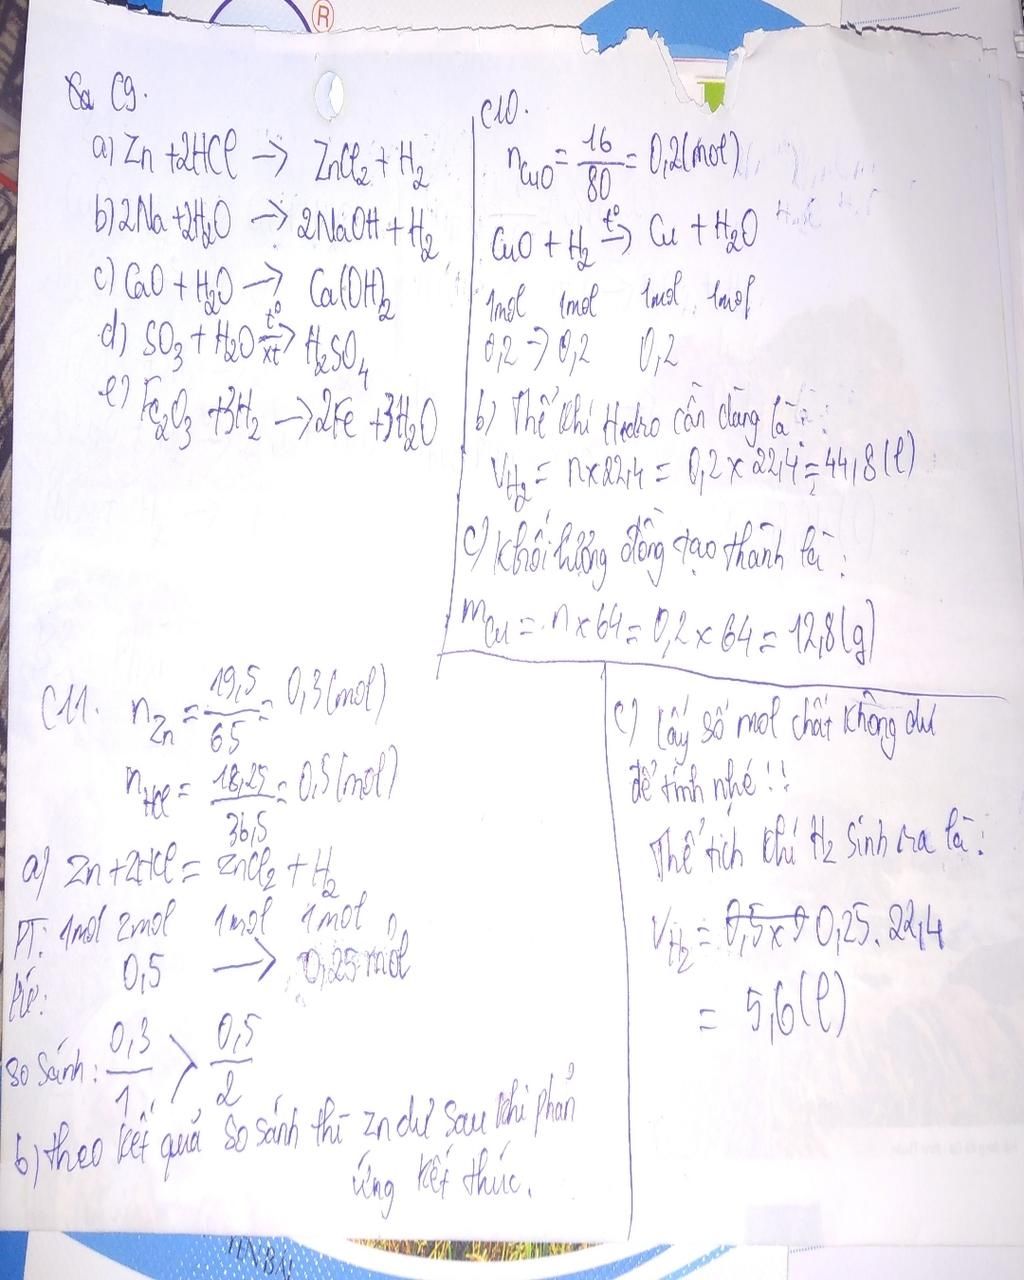 C9.
a) Zn + 2HCl → ZnCl₂ + H₂
b) 2Na + 2H₂O → 2NaOH + H₂
c) CaO + H₂O → Ca(OH)₂
t°
d) SO₃ + H₂O → H₂SO₄
xt
e) Fe₂O₃ + 3H₂ → 2Fe + 3H₂O
C10.
n_CuO = 16/80 = 0,2 (mol)
t°
CuO + H₂ → Cu + H₂O
1mol 1mol 1mol 1mol
0,2 → 0,2 0,2
b) Thể khí Hidro cần dùng là:
V_H₂ = n x 22,4 = 0,2 x 22,4 = 44,8 (l)
c) Khối lượng đồng tạo thành là:
m_Cu = n x 64 = 0,2 x 64 = 12,8 (g)
C11. n_Zn = 19,5/65 = 0,3 (mol)
n_HCl = 18,25/36,5 = 0,5 (mol)
a) Zn + 2HCl = ZnCl₂ + H₂
PT: 1mol 2mol 1mol 1mol
0,5 → 0,25 mol
So sánh: 0,3/1 > 0,5/2
b) Theo kết quả so sánh thì Zn dư sau khi phản
ứng kết thúc.
c) Lấy số mol chất không dư
để tính nhé!!
Thể tích khí H₂ sinh ra là:
V_H₂ = 0,25 . 22,4
= 5,6 (l)
®